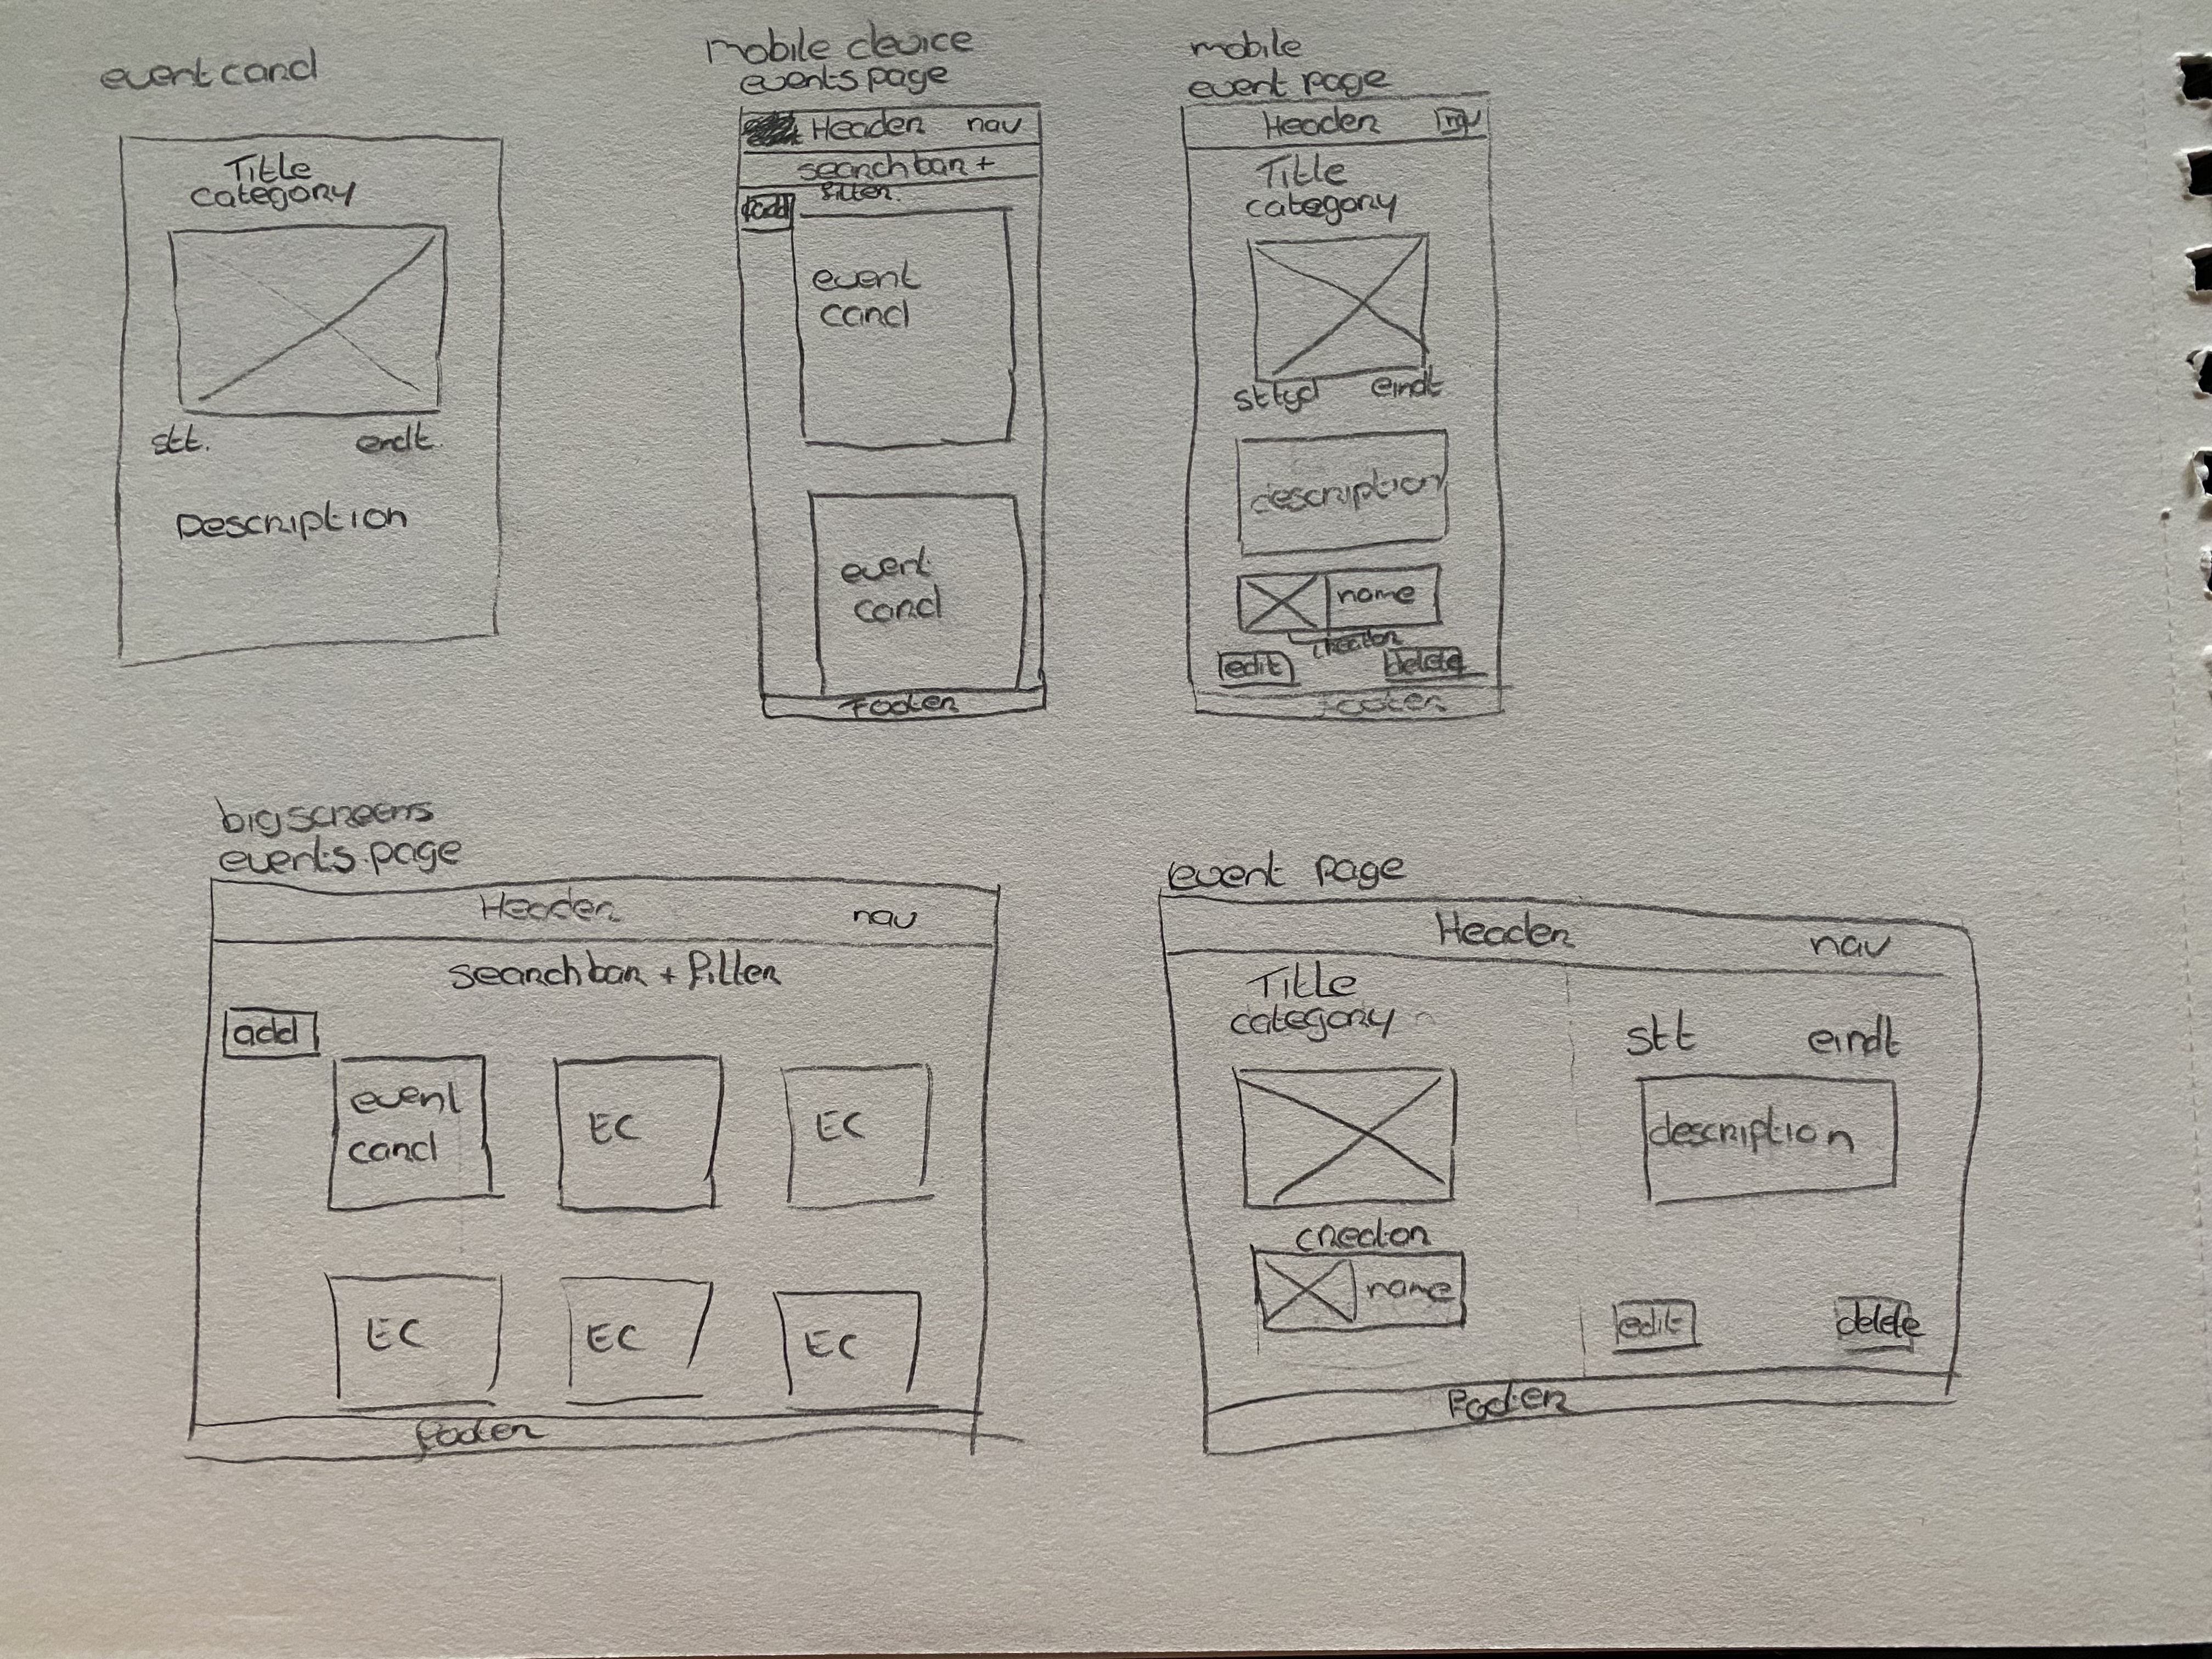 event card
Title
category
stt.
endt.
Description
mobile device
events page
Header nav
searchbar +
filter
add
event
card
event
card
Footer
mobile
event page
Header nav
Title
category
sttyd eindt
description
name
creator
edit delete
Footer
big screens
events page
Header nav
searchbar + filter
add
event
card
EC
EC
EC
EC
EC
footer
event page
Header nav
Title
category
creator
name
stt eindt
description
edit delete
Footer